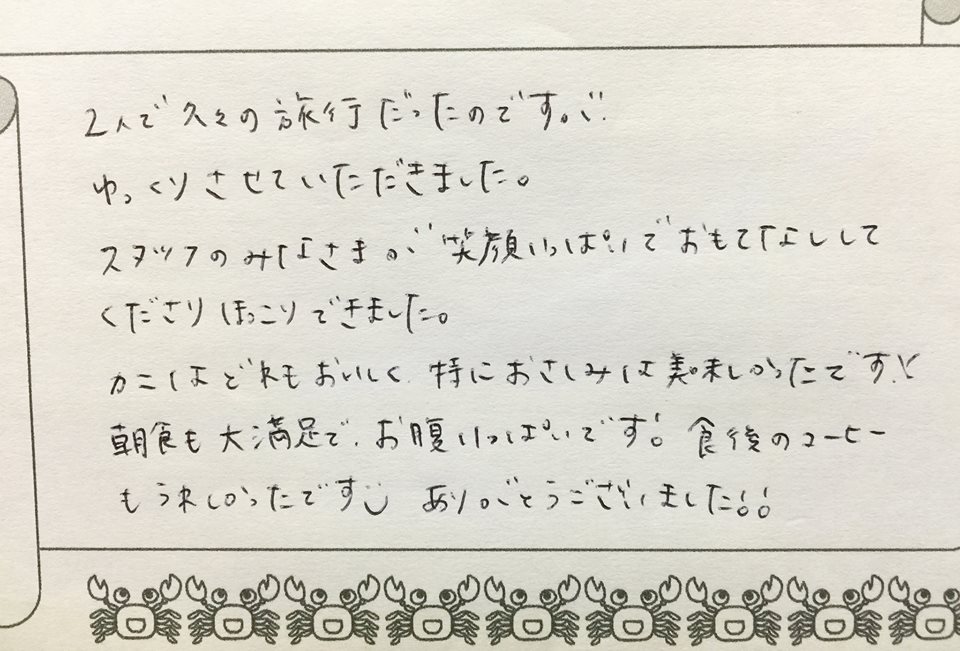 2人で久々の旅行だったのですが、
ゆっくりさせていただきました。
スタッフのみなさまが笑顔いっぱいでおもてなしして
くださりほっこりできました。
カニはどれもおいしく、特におさしみは美味しかったです!!
朝食も大満足で、お腹いっぱいです! 食後のコーヒー
もうれしかったです ありがとうございました!!